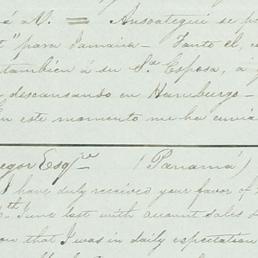 á V. = Ansoategui se p
" para Jamaica — Tanto el, c
tambien á su Sa. Esposa, a
descansando en Hamburgo —
en este momento me ha envia
egor Esqre (Panamá)
I have duly received your favor of
th June last with account sales
ow that I was in daily expectation